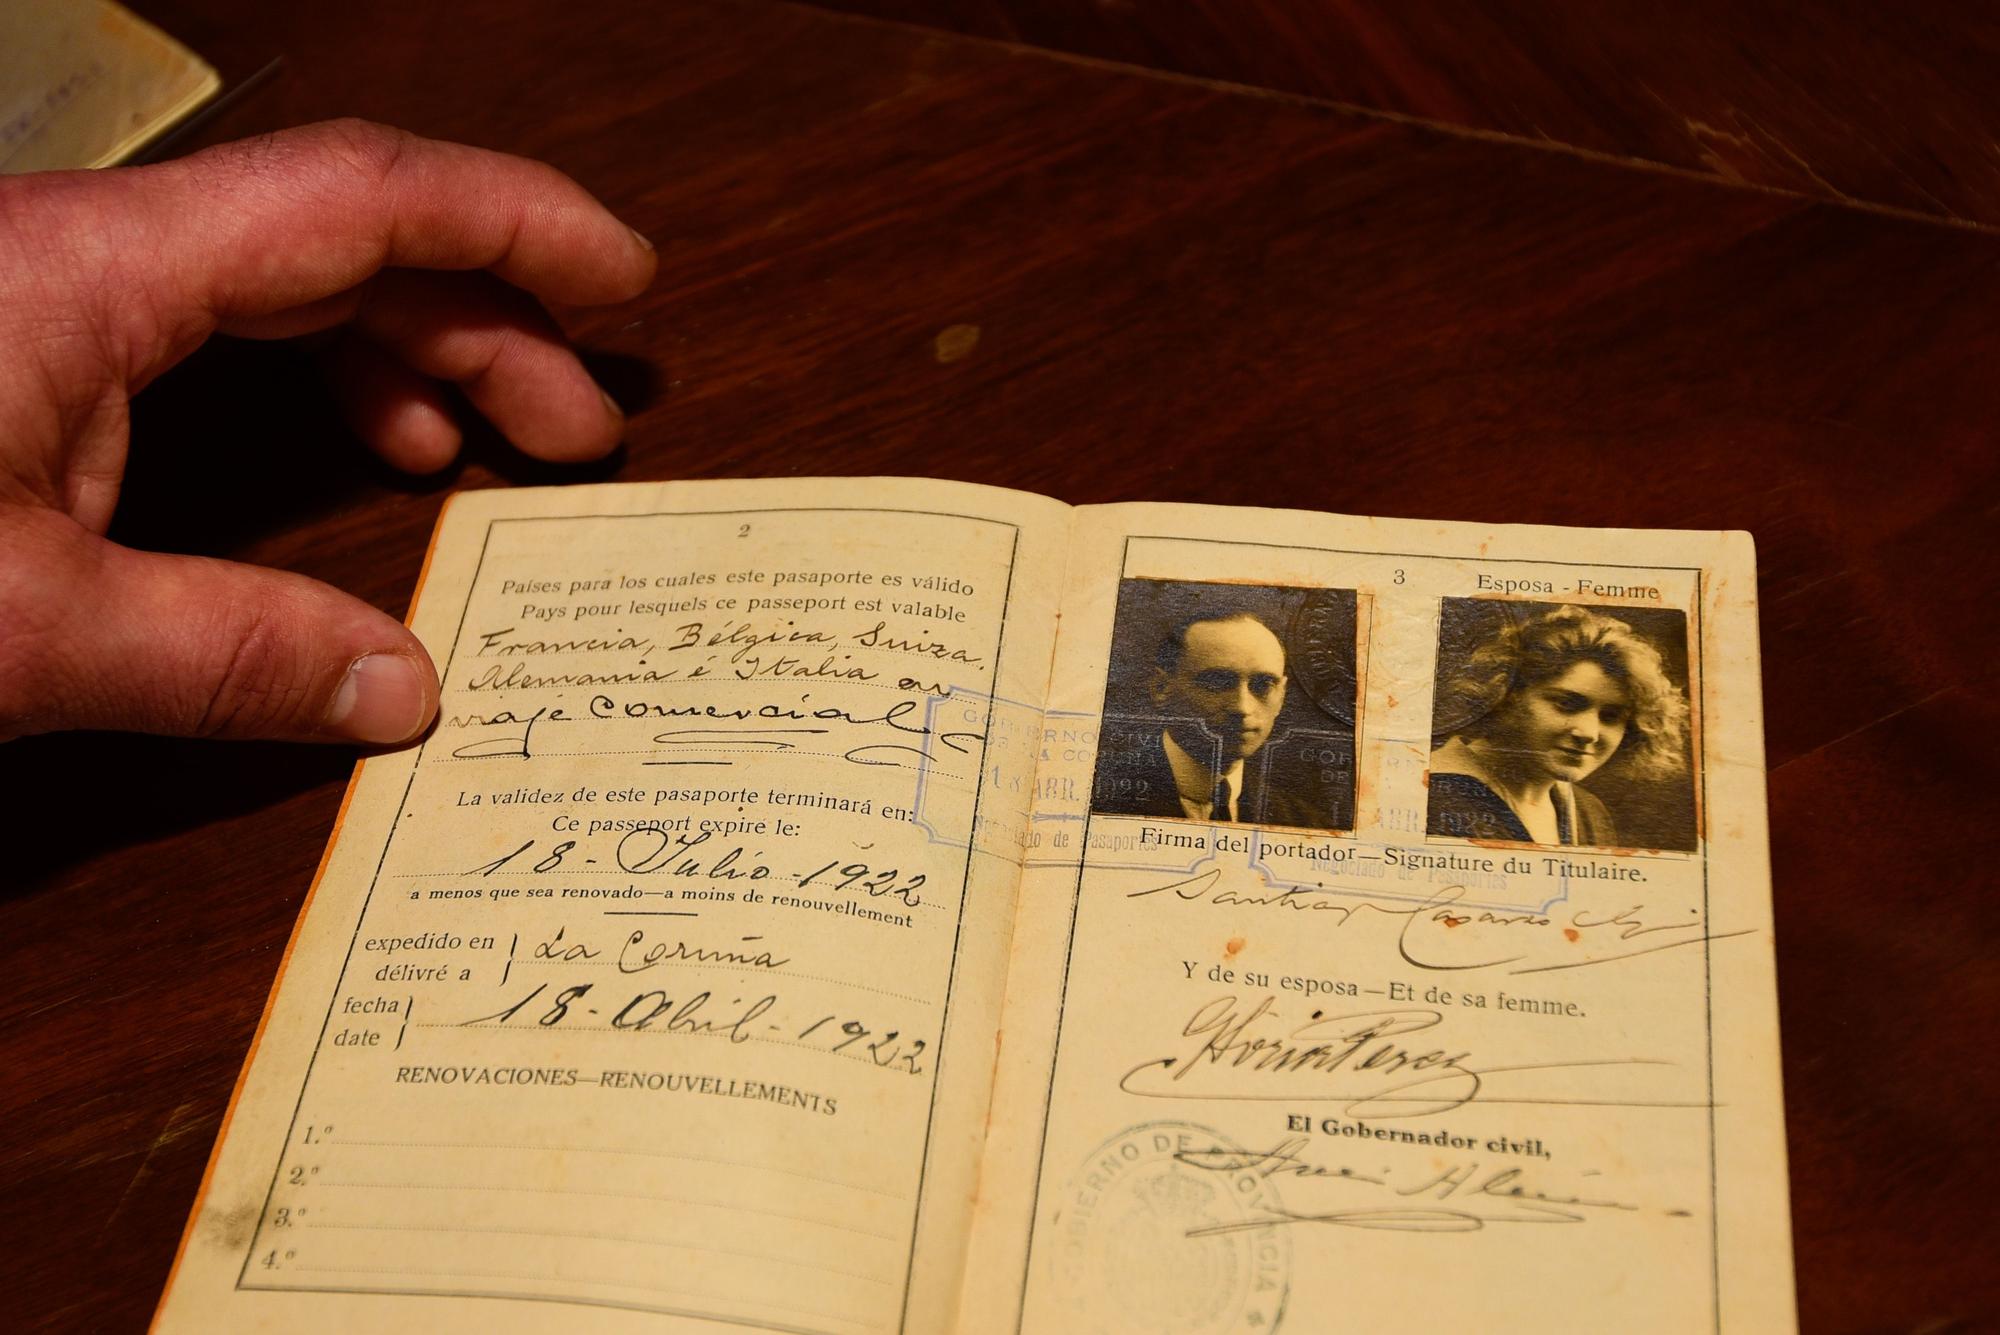 2
Países para los cuales este pasaporte es válido
Pays pour lesquels ce passeport est valable
Francia, Bélgica, Suiza.
Alemania é Italia en
viaje Comercial
La validez de este pasaporte terminará en:
Ce passeport expire le:
18 - Julio - 1922
a menos que sea renovado—a moins de renouvellement
expedido en
délivré a
La Coruña
fecha
date
18 - Abril - 1922
RENOVACIONES—RENOUVELLEMENTS
1.º
2.º
3.º
4.º
3
Esposa - Femme
GOBIERNO CIVIL
DE LA CORUÑA
18 ABR. 1922
Negociado de Pasaportes
ABR. 1922
Negociado de Pasaportes
Firma del portador—Signature du Titulaire.
Santiago Casares
Y de su esposa—Et de sa femme.
Gloria Perez
El Gobernador civil,
GOBIERNO DE PROVINCIA